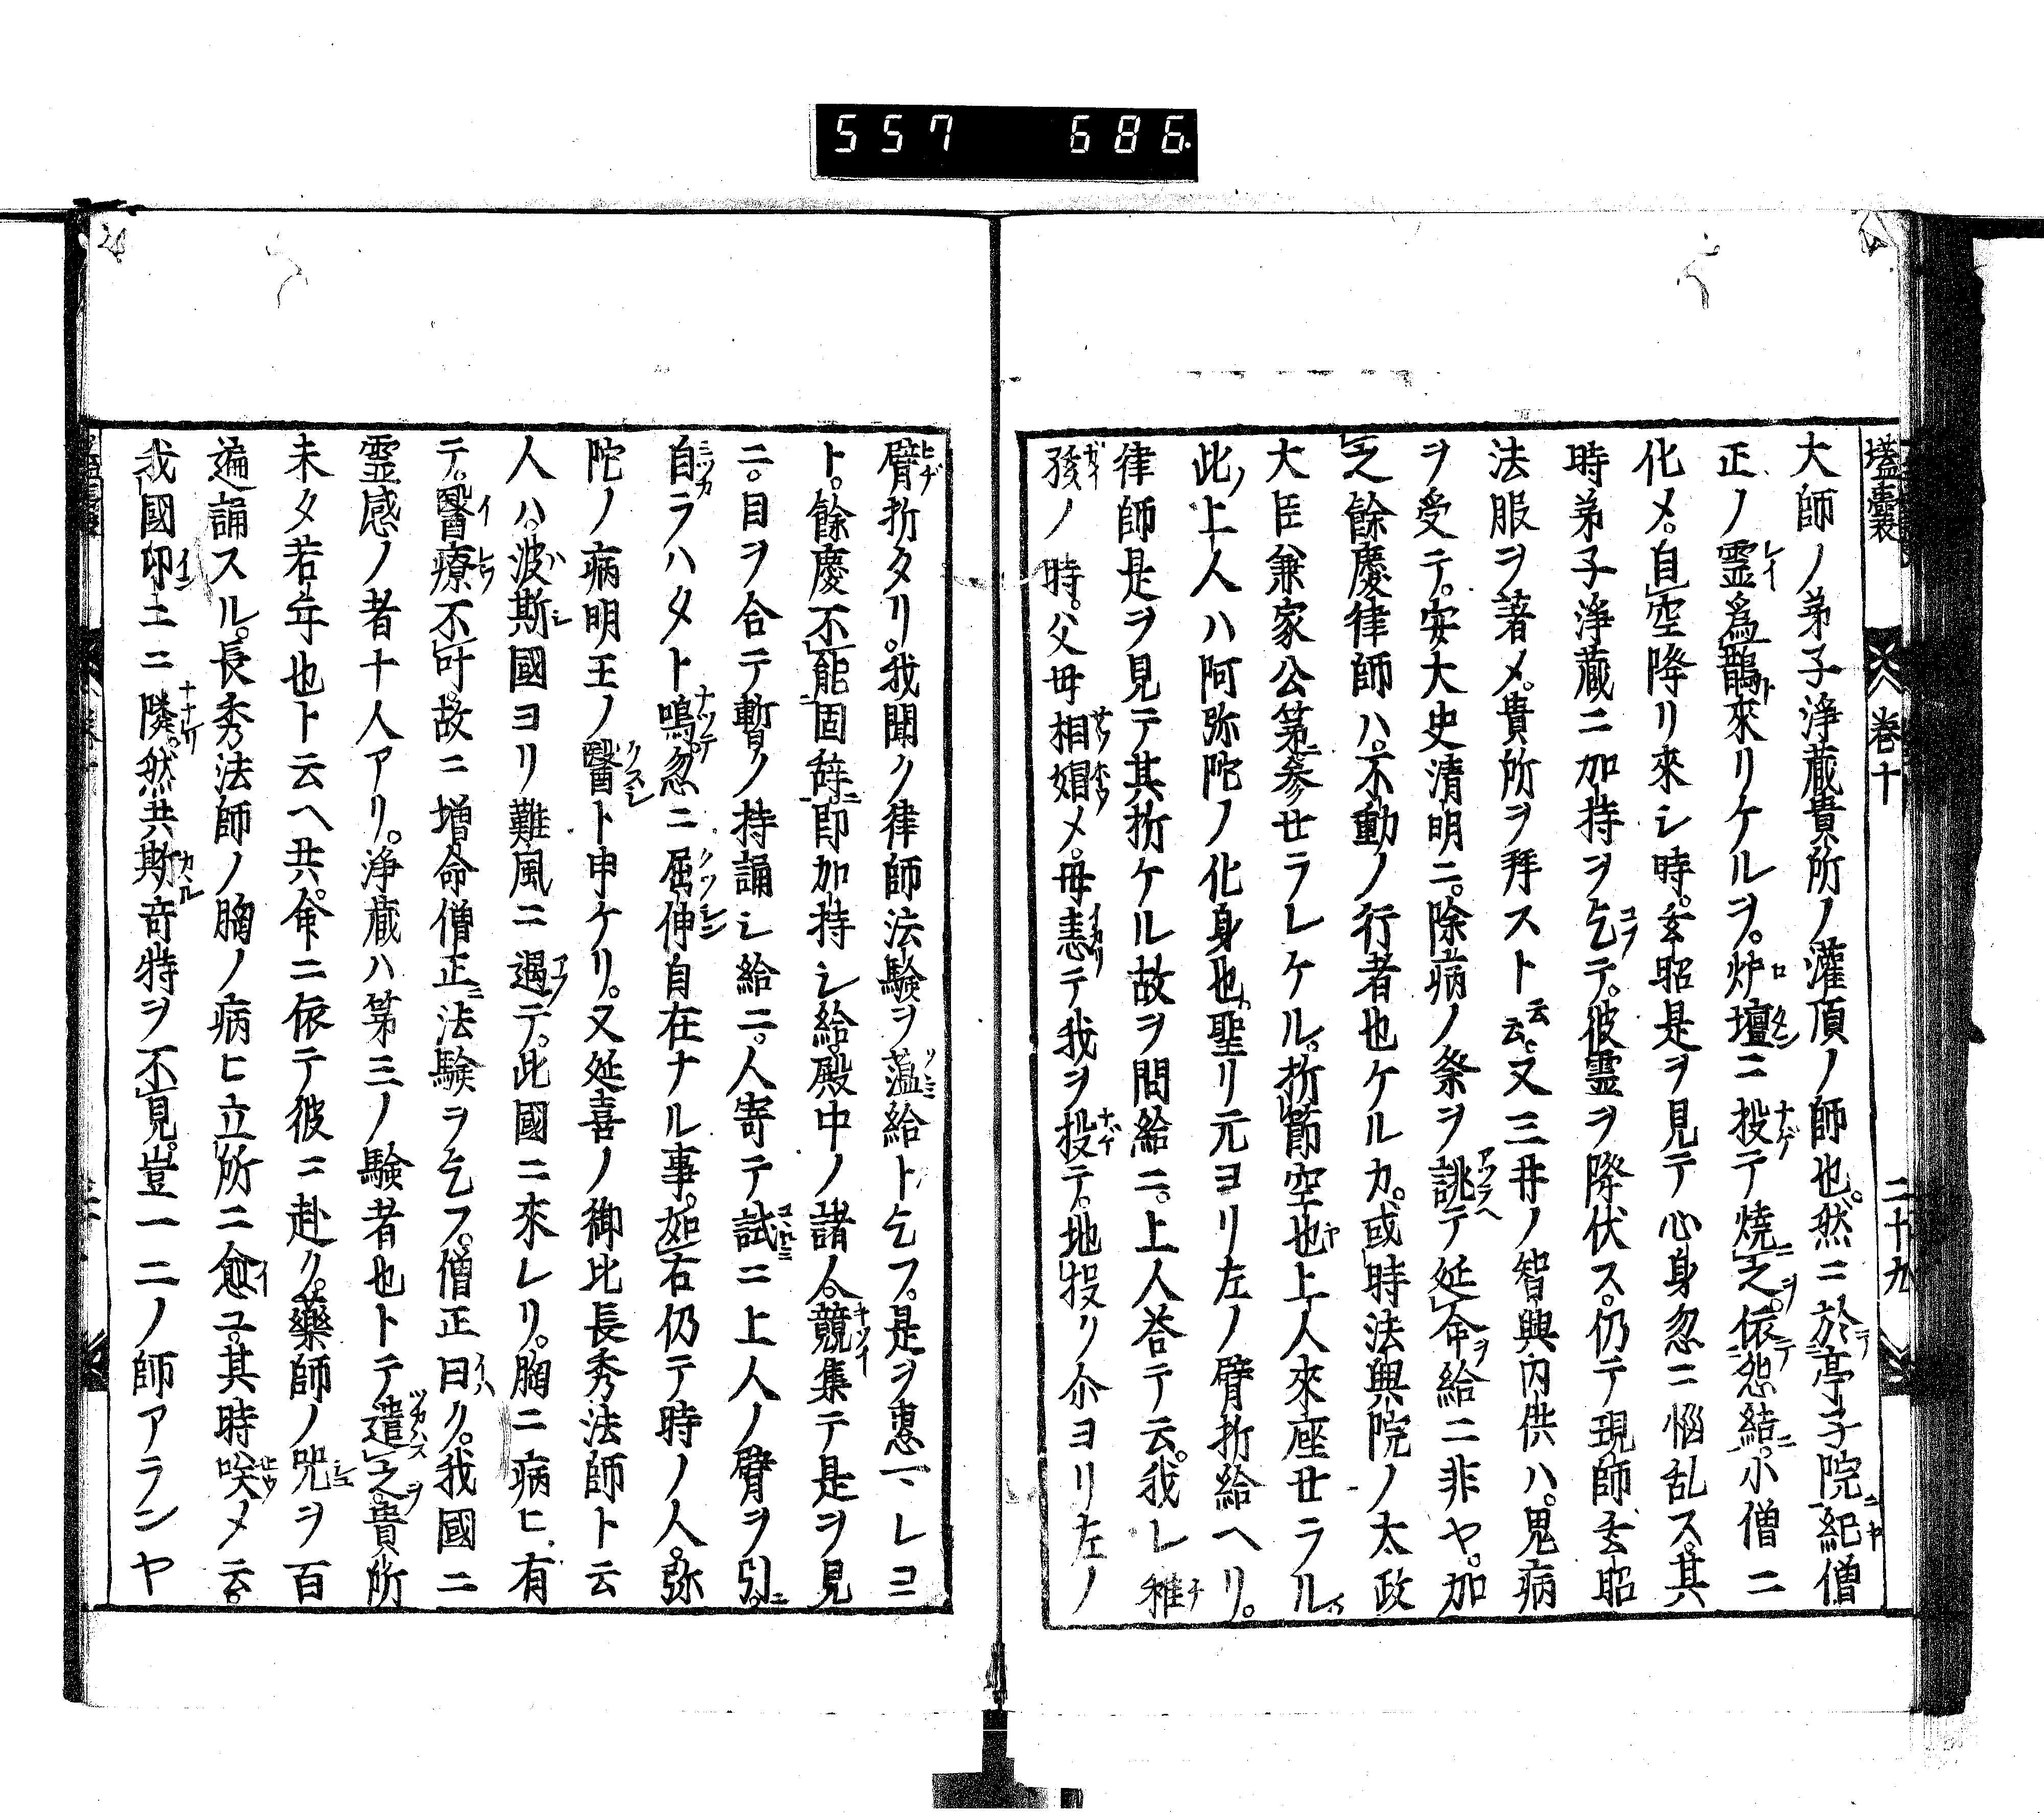 557 686
壒囊 巻十 二十九
大師ノ弟子淨蔵貴所ノ灌頂ノ師也。然ニ於亭子院紀僧
正ノ霊為鵲來リケルヲ。炉壇ニ投テ燒之。依怨結。小僧ニ
化メ。自空降リ來シ時。玄昭是ヲ見テ心身忽ニ惱乱ス。其
時弟子淨蔵ニ加持ヲ乞テ。彼霊ヲ降伏ス。仍テ現師玄昭
法服ヲ著メ。貴所ヲ拜スト云云。又三井ノ智興内供ハ。鬼病
ヲ受テ。安大史清明ニ。除病ノ祭ヲ誂テ延命給ニ非ヤ。加
之餘慶律師ハ。不動ノ行者也ケルカ。或時法興院ノ太政
大臣兼家公第參せラレケル。折節空也上人來座せラル
此上人ハ阿弥陀ノ化身也。聖リ元ヨリ左ノ臂折給ヘリ。
律師是ヲ見テ其折ケル故ヲ問給ニ。上人荅テ云。我レ稚
孩ノ時。父母相娼メ。母恚テ我ヲ投テ。地投リ尒ヨリ左ノ
臂折タリ。我聞ク律師法験ヲ薀給ト乞フ。是ヲ惠一レヨ
ト。餘慶不能固辞即加持シ給。殿中ノ諸人競集テ是ヲ見
ニ。目ヲ合テ暫ノ持誦シ給ニ。人寄テ試ニ上人ノ臂ヲ引。
自ラハタト鳴。忽ニ屈伸自在ナル事。如右仍テ時ノ人。弥
陀ノ病明王ノ醫ト申ケリ。又延喜ノ御比長秀法師ト云
人ハ。波斯國ヨリ難風ニ遇テ。此國ニ來レリ。胸ニ病ヒ有
テ。醫療不叶。故ニ增命僧正法験ヲ乞フ。僧正曰ク。我國ニ
霊感ノ者十人アリ。淨蔵ハ第三ノ験者也トテ遣之。貴所
未タ若年也ト云ヘ共。命ニ依テ彼ニ赴ク。藥師ノ咒ヲ百
遍誦スル。長秀法師ノ胸ノ病ヒ立所ニ愈ユ。其時咲メ云。
我國印ニニ隣。然共斯奇特ヲ不見。豈一二ノ師アランヤ